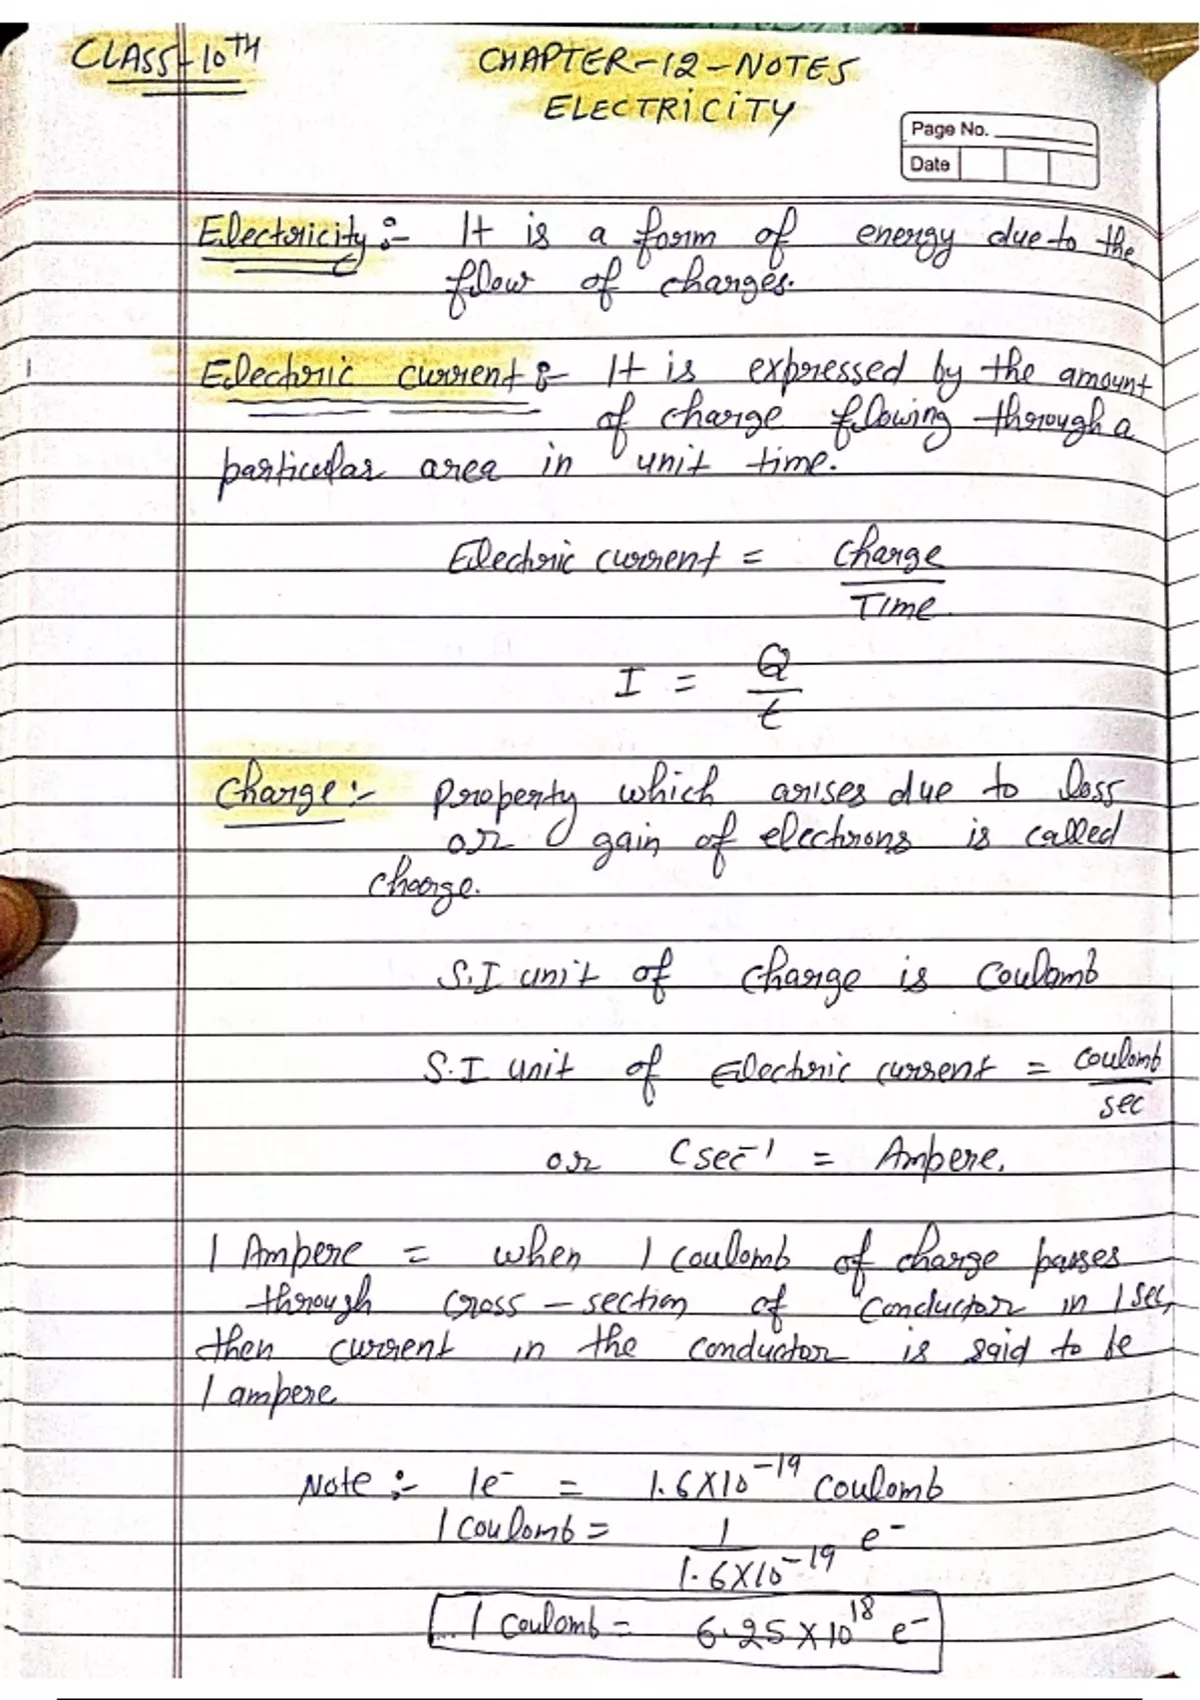 CLASS-10TH
CHAPTER-12-NOTES
ELECTRICITY
Page No.
Date
Electricity:- It is a form of energy due to the
flow of charges.
Electric current:- It is expressed by the amount
of charge flowing through a
particular area in unit time.
Electric current = Charge/Time
I = Q/t
Charge:- Property which arises due to loss
or gain of electrons is called
charge.
S.I unit of charge is Coulomb
S.I unit of Electric current = Coulomb/sec
or C sec⁻¹ = Ampere.
1 Ampere = when 1 coulomb of charge passes
through cross-section of conductor in 1 sec,
then current in the conductor is said to be
1 ampere
Note:- 1e⁻ = 1.6X10⁻¹⁹ Coulomb
1 Coulomb = 1/1.6X10⁻¹⁹ e⁻
1 Coulomb = 6.25 X 10¹⁸ e⁻